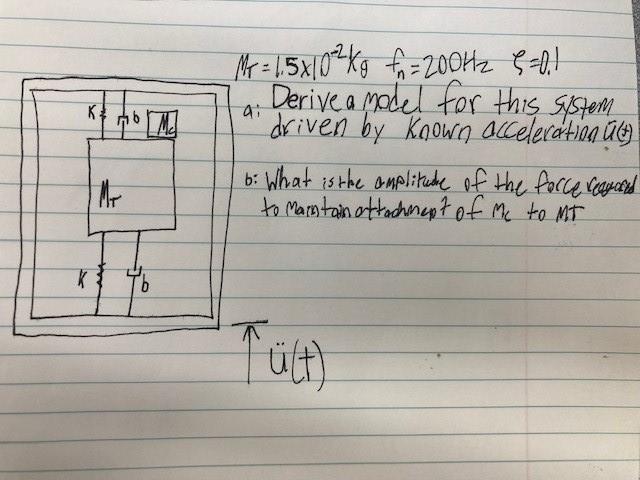 M_T = 1.5x10^-2 kg f_n = 200Hz ζ = 0.1
a: Derive a model for this system
driven by known acceleration ü(t)
b: What is the amplitude of the force required
to maintain attachment of M_c to M_T
K b M_c
M_T
K b
ü(t)